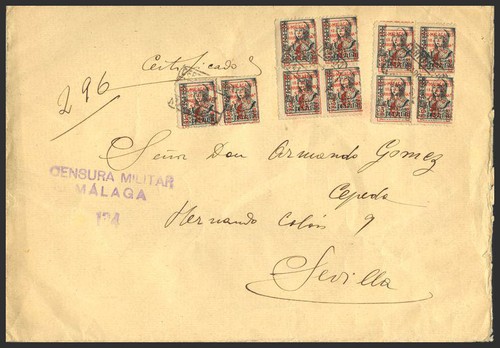 Certificado
296
Señor Don Armando Gomez
Cepeda
CENSURA MILITAR
MÁLAGA
134
Hernando Colón 9
Sevilla